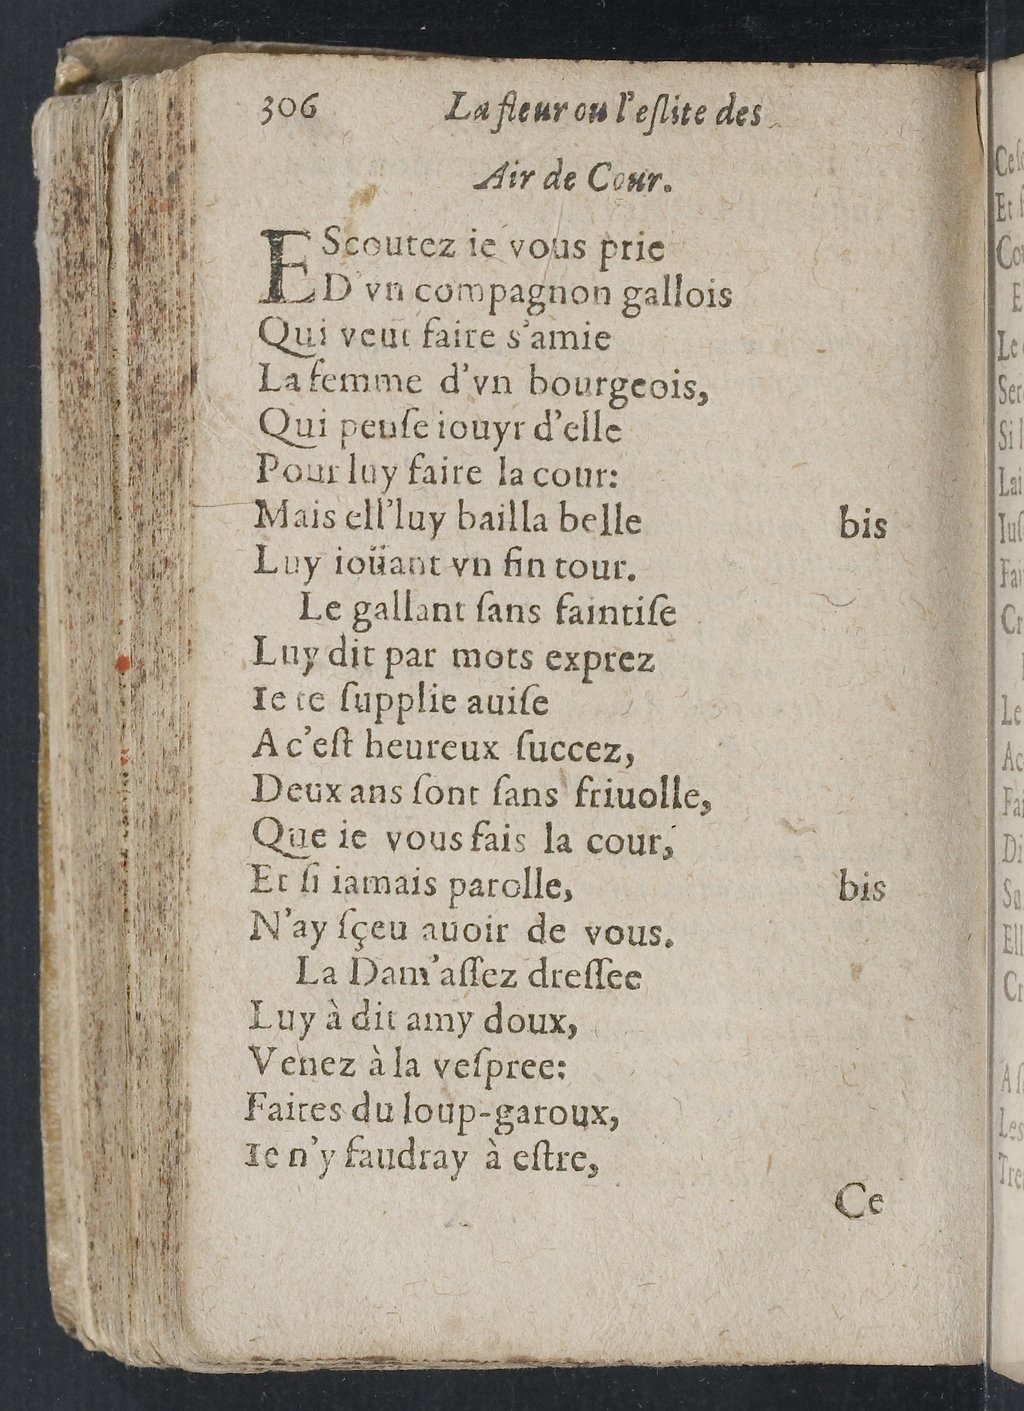 306 La fleur ou l'eſlite des
Air de Cour.
EScoutez ie vous prie
D'vn compagnon gallois
Qui veut faire s'amie
La femme d'vn bourgeois,
Qui penſe iouyr d'elle
Pour luy faire la cour:
Mais ell'luy bailla belle bis
Luy ioüant vn fin tour.
Le gallant ſans faintiſe
Luy dit par mots exprez
Ie te ſupplie auiſe
A c'eſt heureux ſuccez,
Deux ans ſont ſans friuolle,
Que ie vous fais la cour,
Et ſi iamais parolle, bis
N'ay ſçeu auoir de vous.
La Dam'aſſez dreſſee
Luy à dit amy doux,
Venez à la veſpree:
Faites du loup-garoux,
Ie n'y faudray à eſtre,
Ce